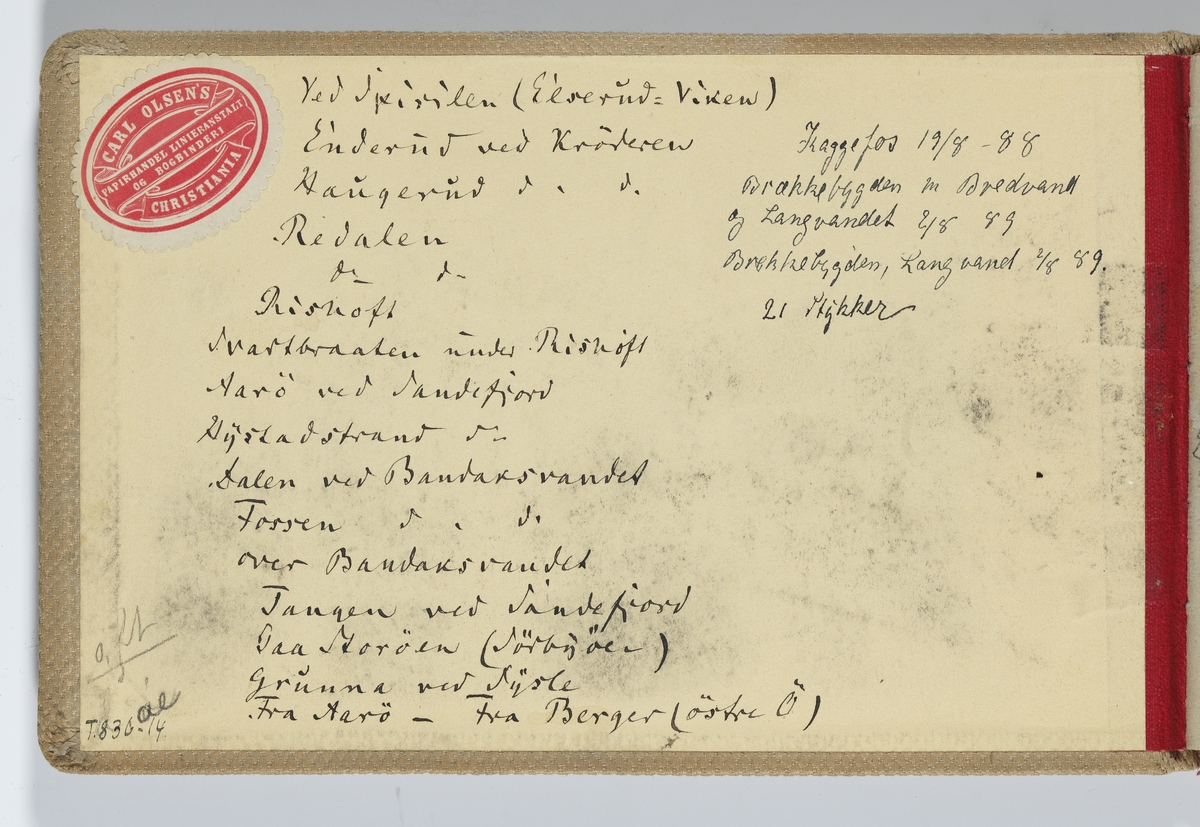 CARL OLSEN'S
PAPIRHANDEL LINIERANSTALT
OG BOGBINDERI
CHRISTIANIA
Ved Spirilen (Elserud= Viken)
Enderud ved Kröderen
Haugerud d . d.
Redalen
do d-
Rishöft
Svartbraaten under Rishöft
Aarö ved Sandefjord
Hystadstrand d-
Dalen ved Bandaksvandet
Fossen d . d.
over Bandaksvandet
Tangen ved Sandefjord
Paa Storöen (Sörbyöen)
Grunna ved Sysle
Fra Aarö – Fra Berger (östre Ö)
Kaggefos 19/8 - 88
Brækkebygden m Bredvand
og Langvandet 2/8 89
Brækkebygden, Langvand 2/8 89.
21 Stykker
T.830-14.